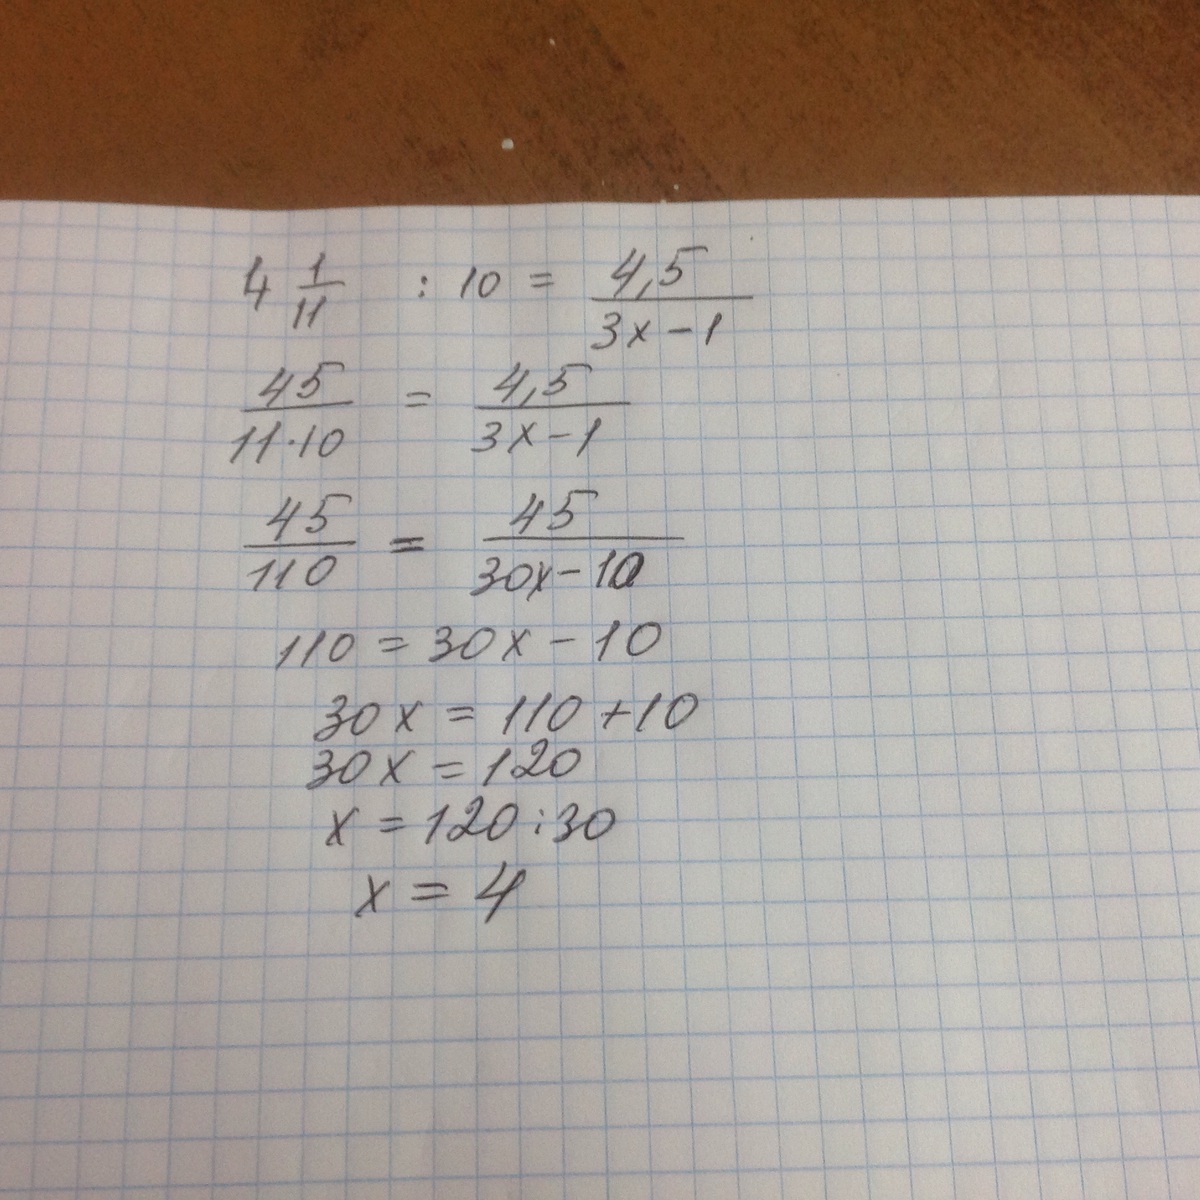 4 1/11 : 10 = 4,5/(3x-1)
45/(11·10) = 4,5/(3x-1)
45/110 = 45/(30x-10)
110 = 30x - 10
30x = 110 + 10
30x = 120
x = 120 : 30
x = 4